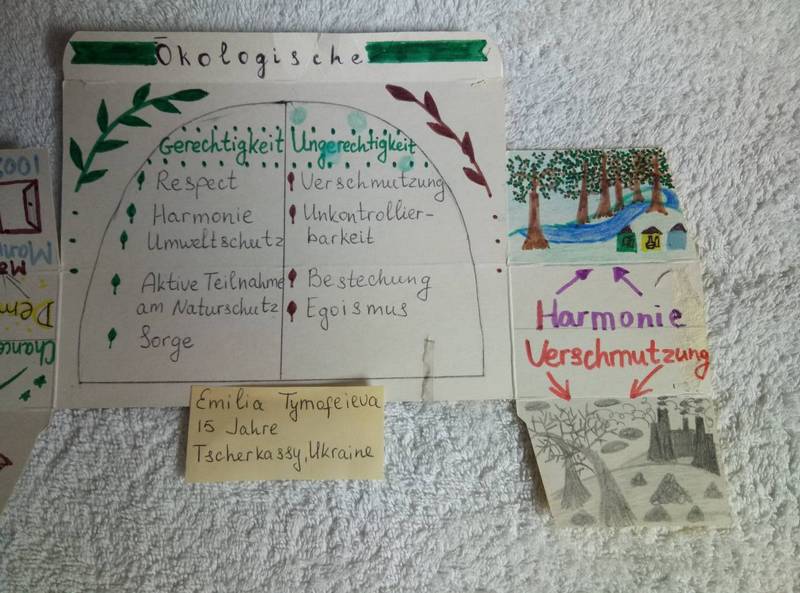 Ökologische
Gerechtigkeit Ungerechtigkeit
Respect
Harmonie
Umweltschutz
Aktive Teilnahme
am Naturschutz
Sorge
Verschmutzung
Unkontrollier-
barkeit
Bestechung
Egoismus
Emilia Tymofeieva
15 Jahre
Tscherkassy, Ukraine
Harmonie
Verschmutzung
100%
Chance